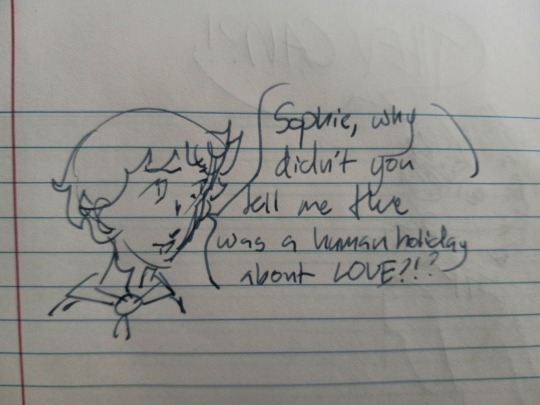 Sophie, why
didn't you
tell me thre
was a human holiday
about LOVE?!?